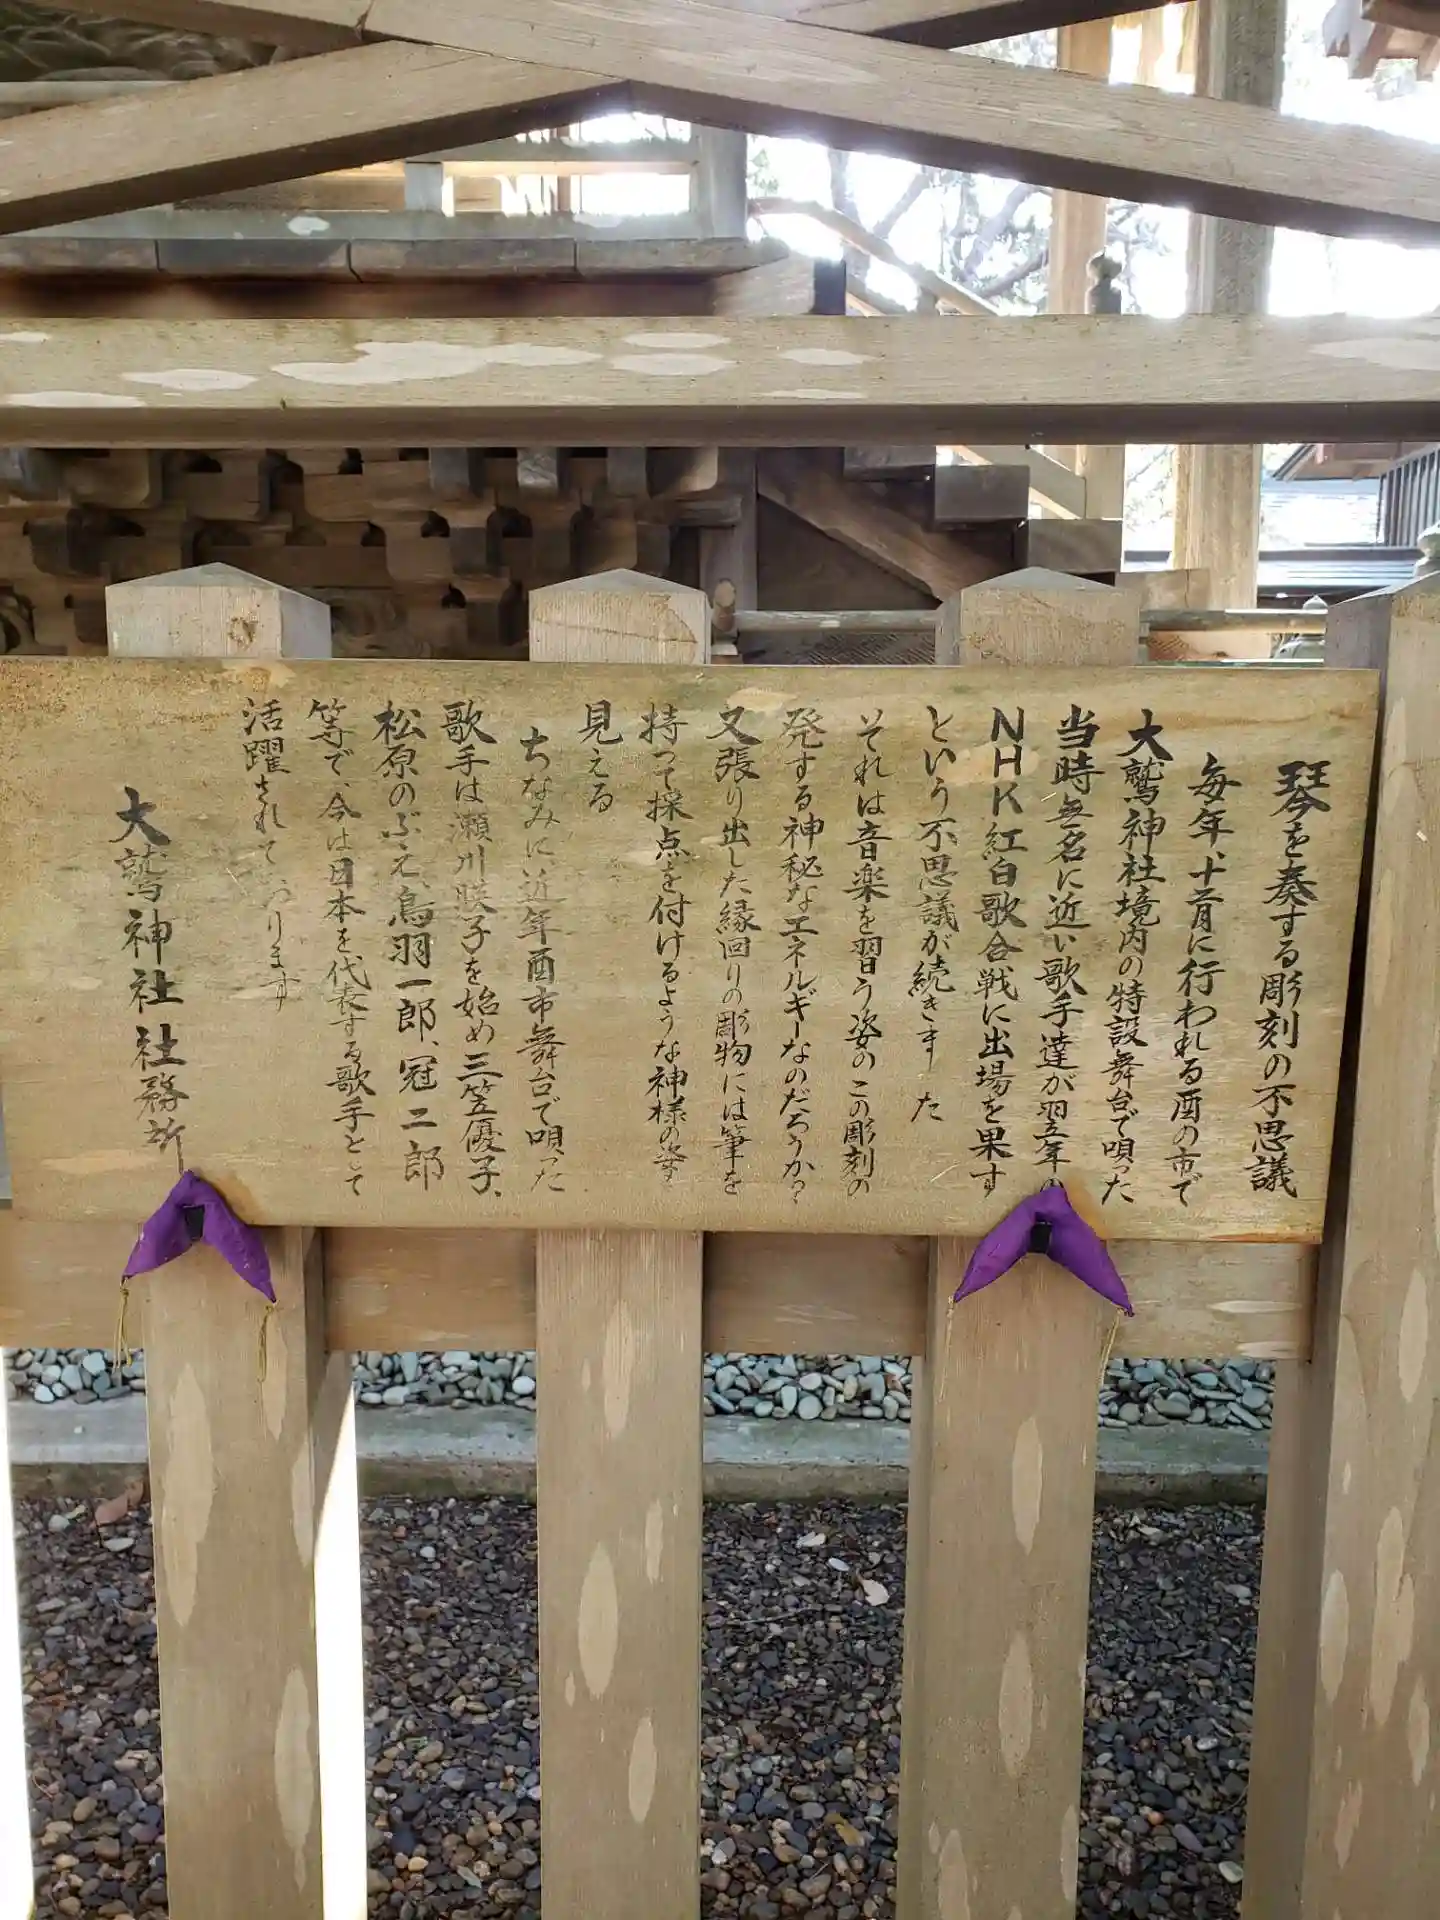 琴を奏する彫刻の不思議
毎年、十二月に行われる酉の市で
大鷲神社境内の特設舞台で唄った
当時無名に近い歌手達が翌年の
NHK紅白歌合戦に出場を果す
という不思議が続きました
それは音楽を習う姿のこの彫刻の
発する神秘なエネルギーなのだろうか?
又張り出した縁回りの彫物には筆を
持って採点を付けるような神様の姿
見える
ちなみに、近年酉市舞台で唄った
歌手は瀬川瑛子を始め三笠優子、
松原のぶえ、鳥羽一郎、冠二郎
等で、今は日本を代表する歌手として
活躍されております
大鷲神社社務所